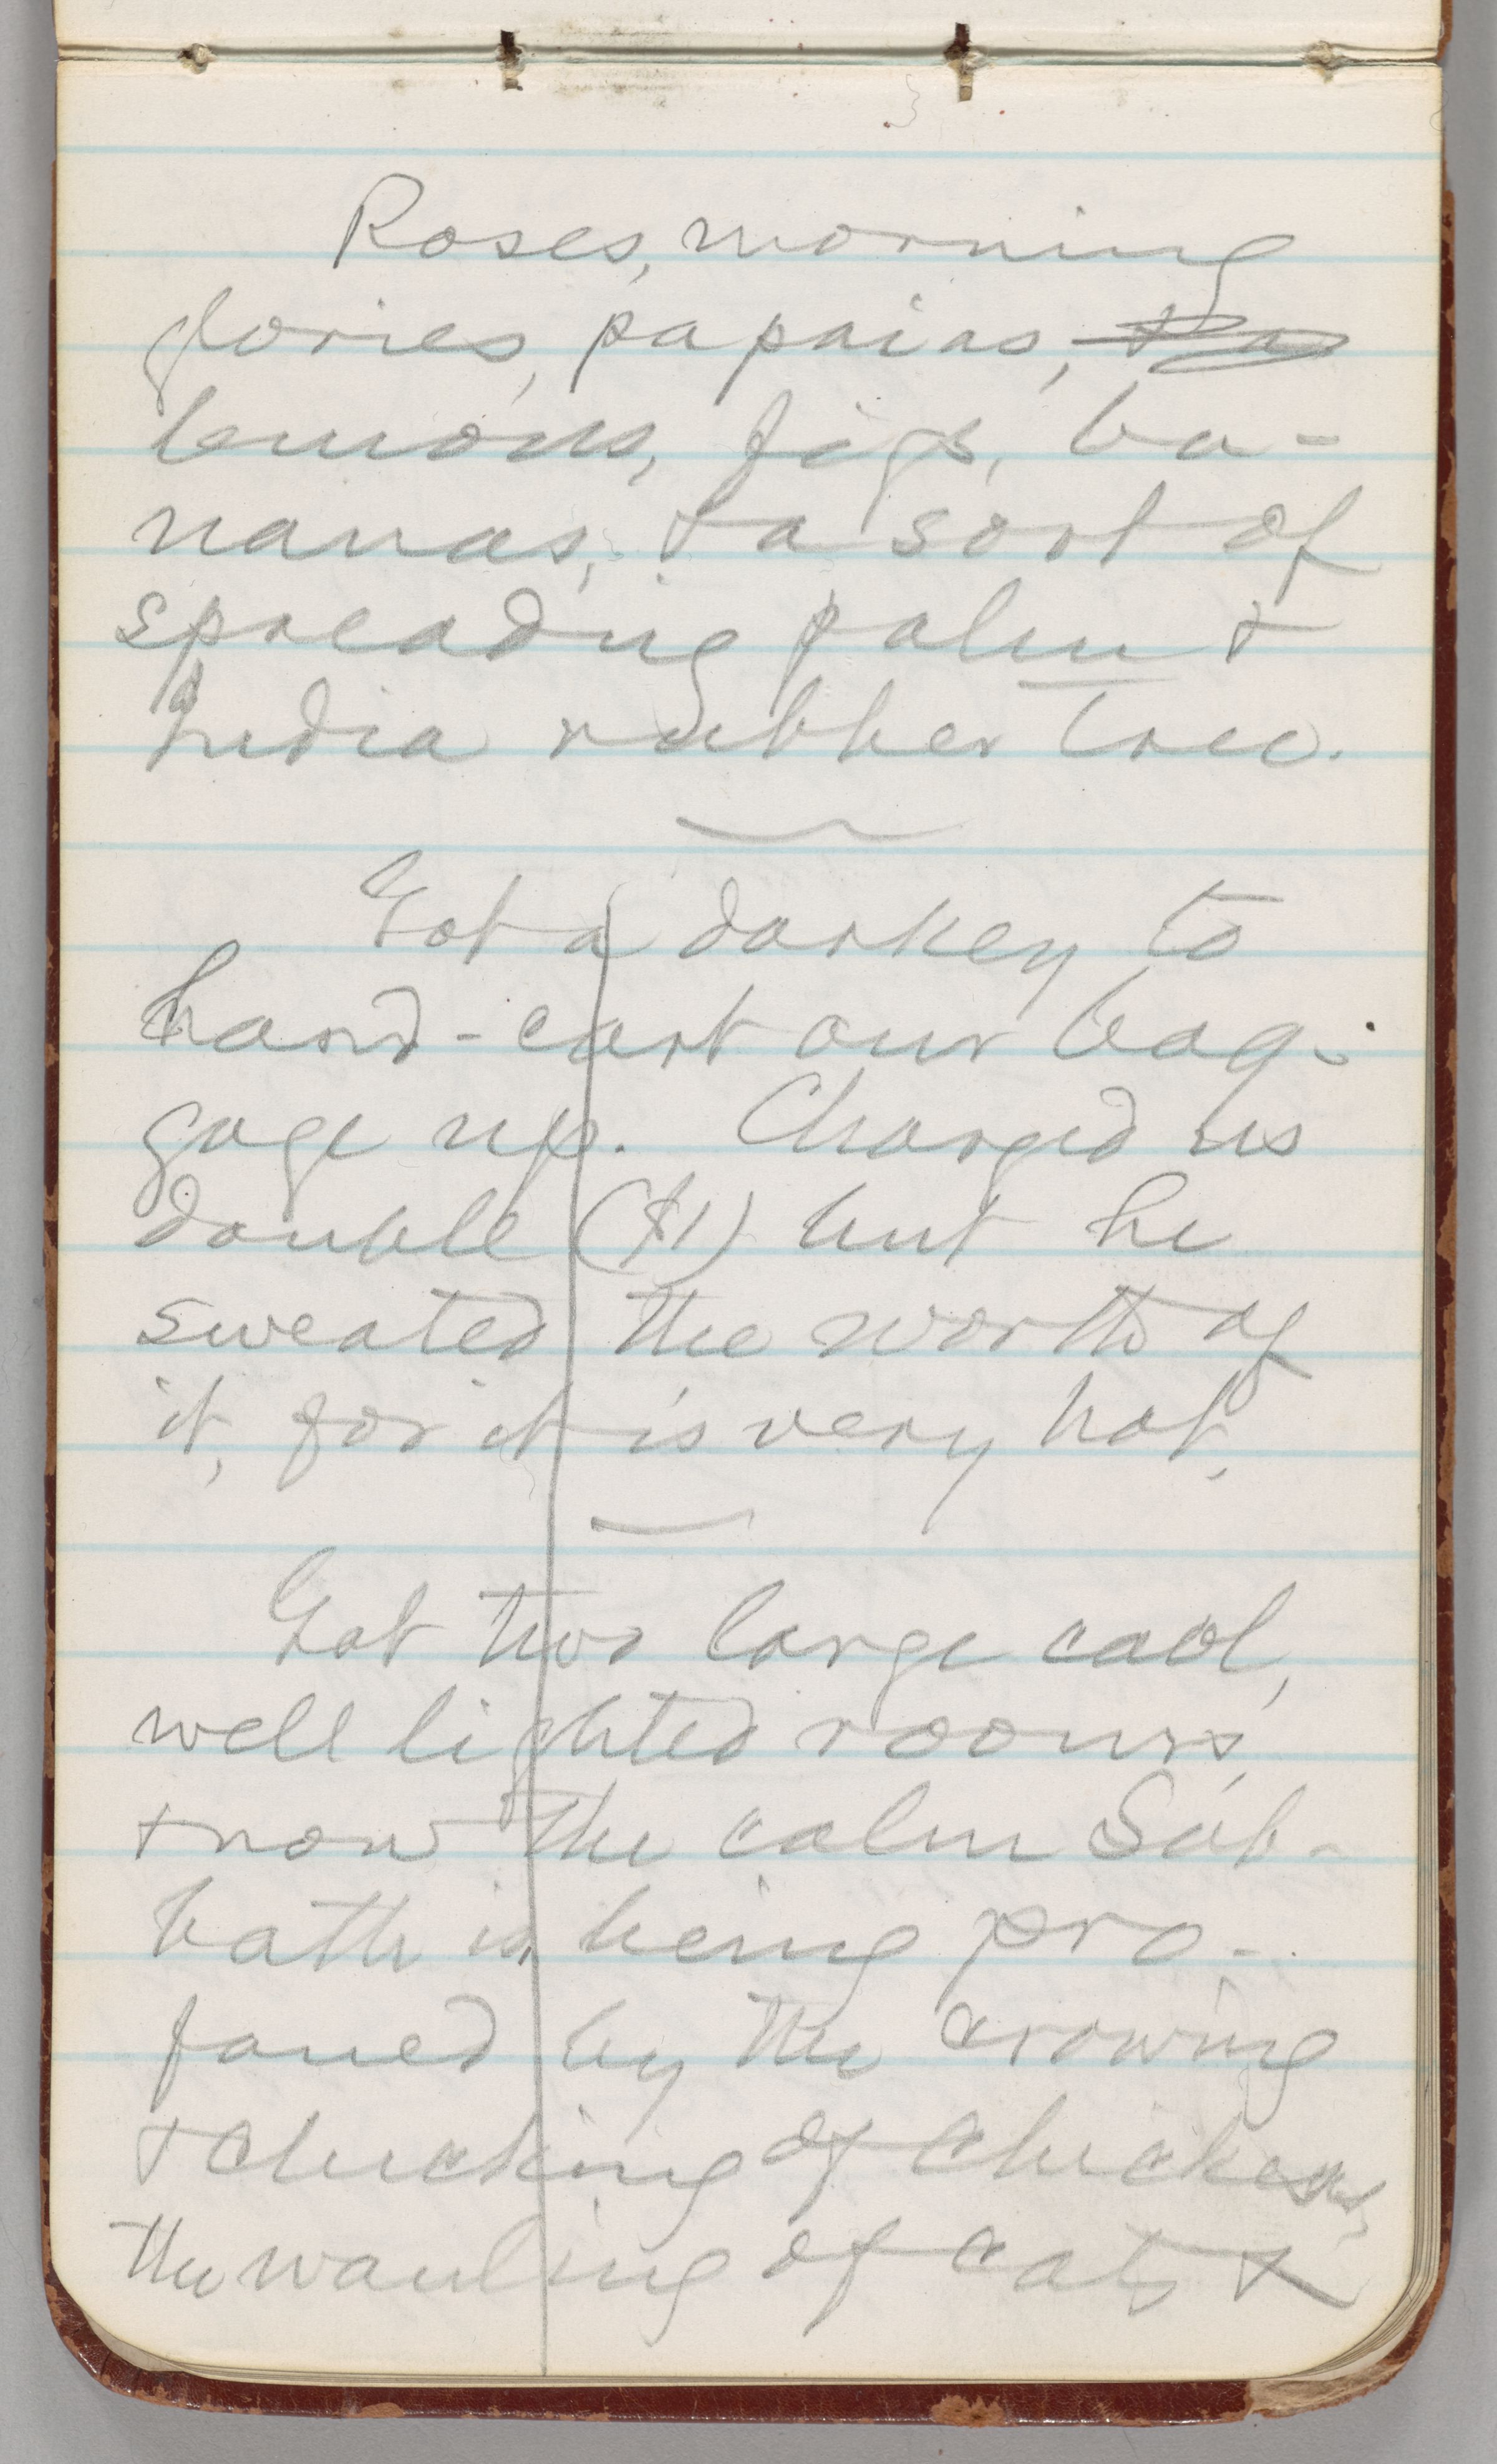 Roses, morning
glories, papaias, & a
lemons, figs, ba-
nanas, & a sort of
spreading palm &
India rubber tree.
Got a darkey to
hand-cart our bag-
gage up. Charged us
double ($1) but he
sweated the worth of
it, for it is very hot.
Got two large cool,
well lighted rooms,
& now the calm Sab-
bath is being pro-
faned by the crowing
& clucking of chickens,
the wauling of cats &